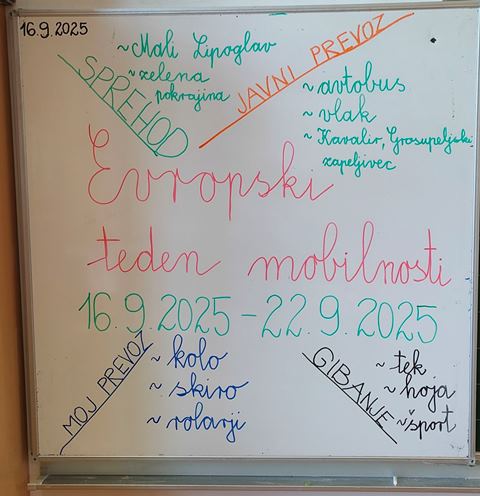 16.9.2025
SPREHOD
~ Mali Lipoglav
~ zelena
pokrajina
JAVNI PREVOZ
~ avtobus
~ vlak
~ Kavalir, Grosupeljski
zapeljivec
Evropski
teden mobilnosti
16.9.2025 - 22.9.2025
MOJ PREVOZ
~ kolo
~ skiro
~ rolarji
GIBANJE
~ tek
~ hoja
~ šport